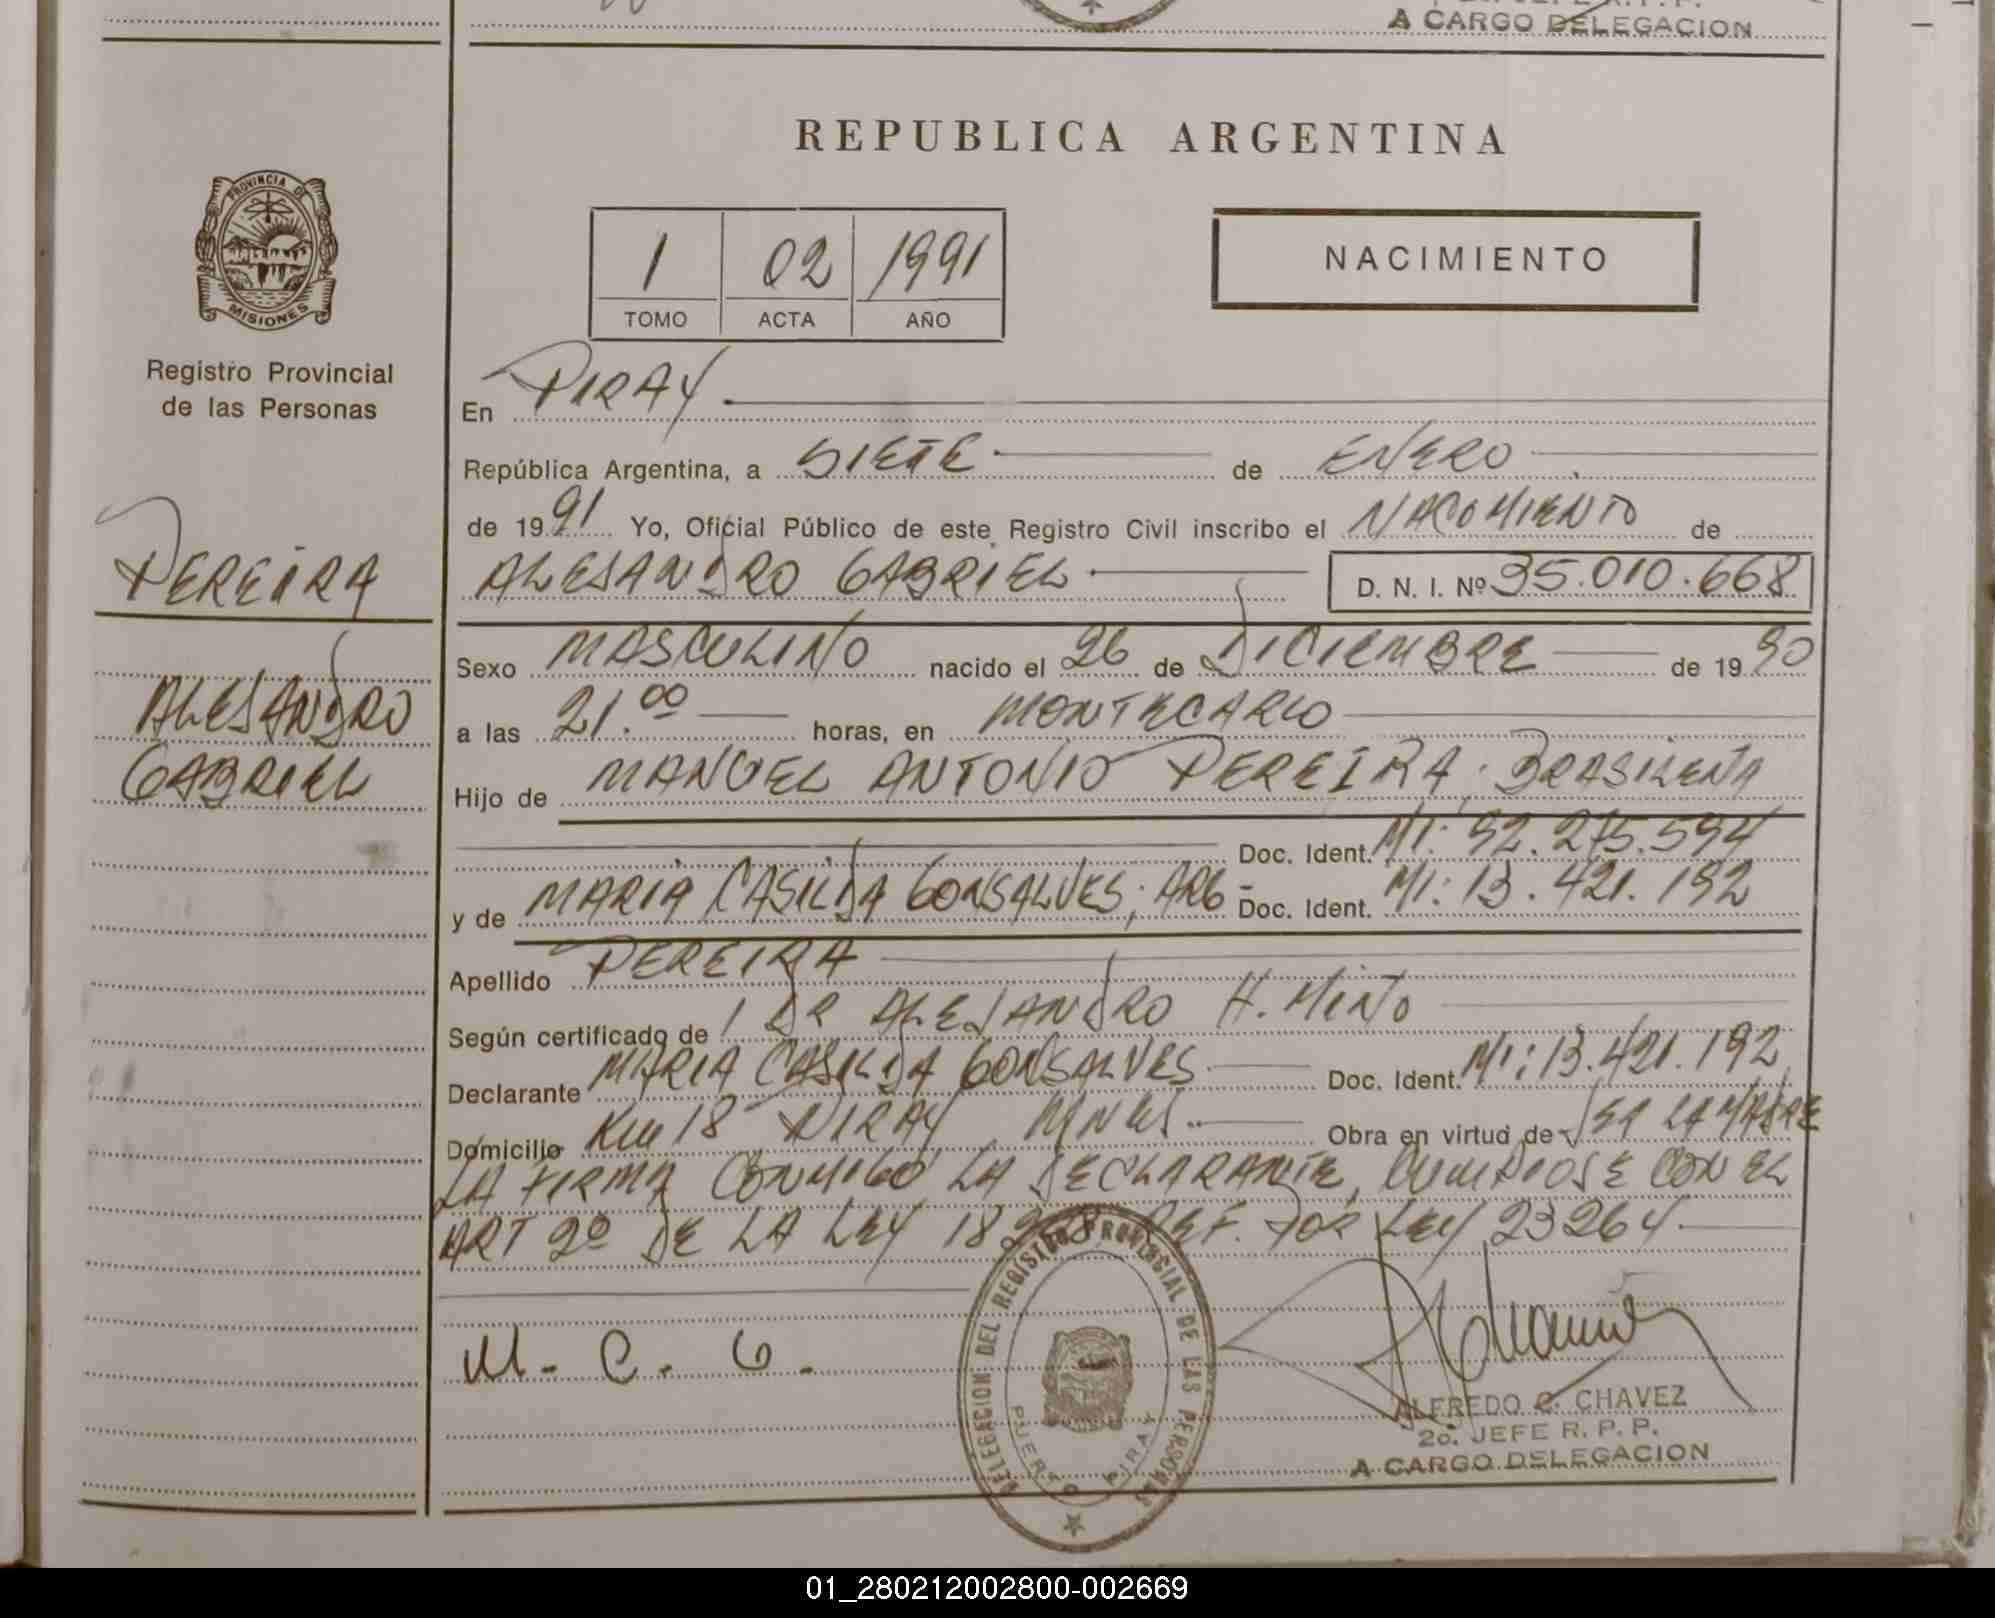 A CARGO DELEGACION
REPUBLICA ARGENTINA
PROVINCIA DE
MISIONES
Registro Provincial
de las Personas
1 02 1991
TOMO ACTA AÑO
NACIMIENTO
En PIRAY
República Argentina, a SIETE de ENERO
de 1991 Yo, Oficial Público de este Registro Civil inscribo el NACOMIENTO de
PEREIRA
ALESANDRO GABRIEL D. N. I. Nº 35.010.668
ALESANDRO
GABRIEL
Sexo MASCULINO nacido el 26 de DICIEMBRE de 1990
a las 21.00 horas, en MONTECARLO
Hijo de MANUEL ANTONIO PEREIRA, BRASILEÑA
Doc. Ident. MI: 92.275.594
y de MARIA CASILDA GONSALVES; ARG - Doc. Ident. MI: 13.421.192
Apellido PEREIRA
Según certificado de 1 DR ALEJANDRO H. MIÑO
Declarante MARIA CASILDA GONSALVES Doc. Ident. MI: 13.421.192
Domicilio Km 18 PIRAY MNES. Obra en virtud de SER LA MADRE
LA FIRMA CONMIGO LA DECLARANTE, CUMPLIOSE CON EL
ART 2º DE LA LEY REF. POR LEY 23264
M. C. G.
DELEGACION DEL REGISTRO PROVINCIAL DE LAS PERSONAS
PUERTO PIRAY
ALFREDO C. CHAVEZ
2o. JEFE R. P. P.
A CARGO DELEGACION
01_280212002800-002669